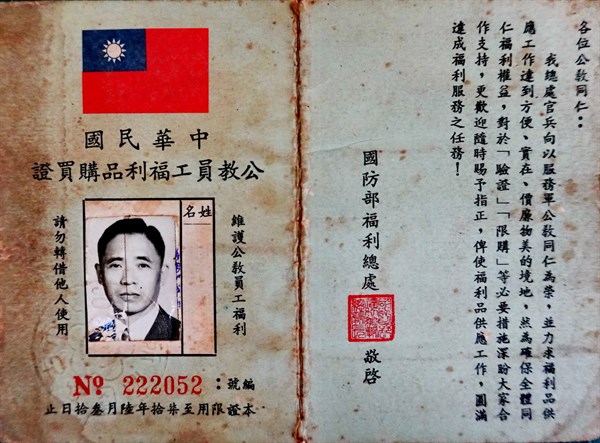 中華民國
公教員工福利品購買證
姓名
維護公教員工福利
請勿轉借他人使用
編號：№ 222052
本證限用至柒拾年陸月叁拾日止
各位公教同仁：
我總處官兵向以服務軍公教同仁為榮，並力求福利品供
應工作達到方便、實在、價廉物美的境地，然為確保全體同
仁福利權益，對於「驗證」「限購」等必要措施深盼大家合
作支持，更歡迎隨時賜予指正，俾使福利品供應工作，圓滿
達成福利服務之任務！
國防部福利總處 敬啓